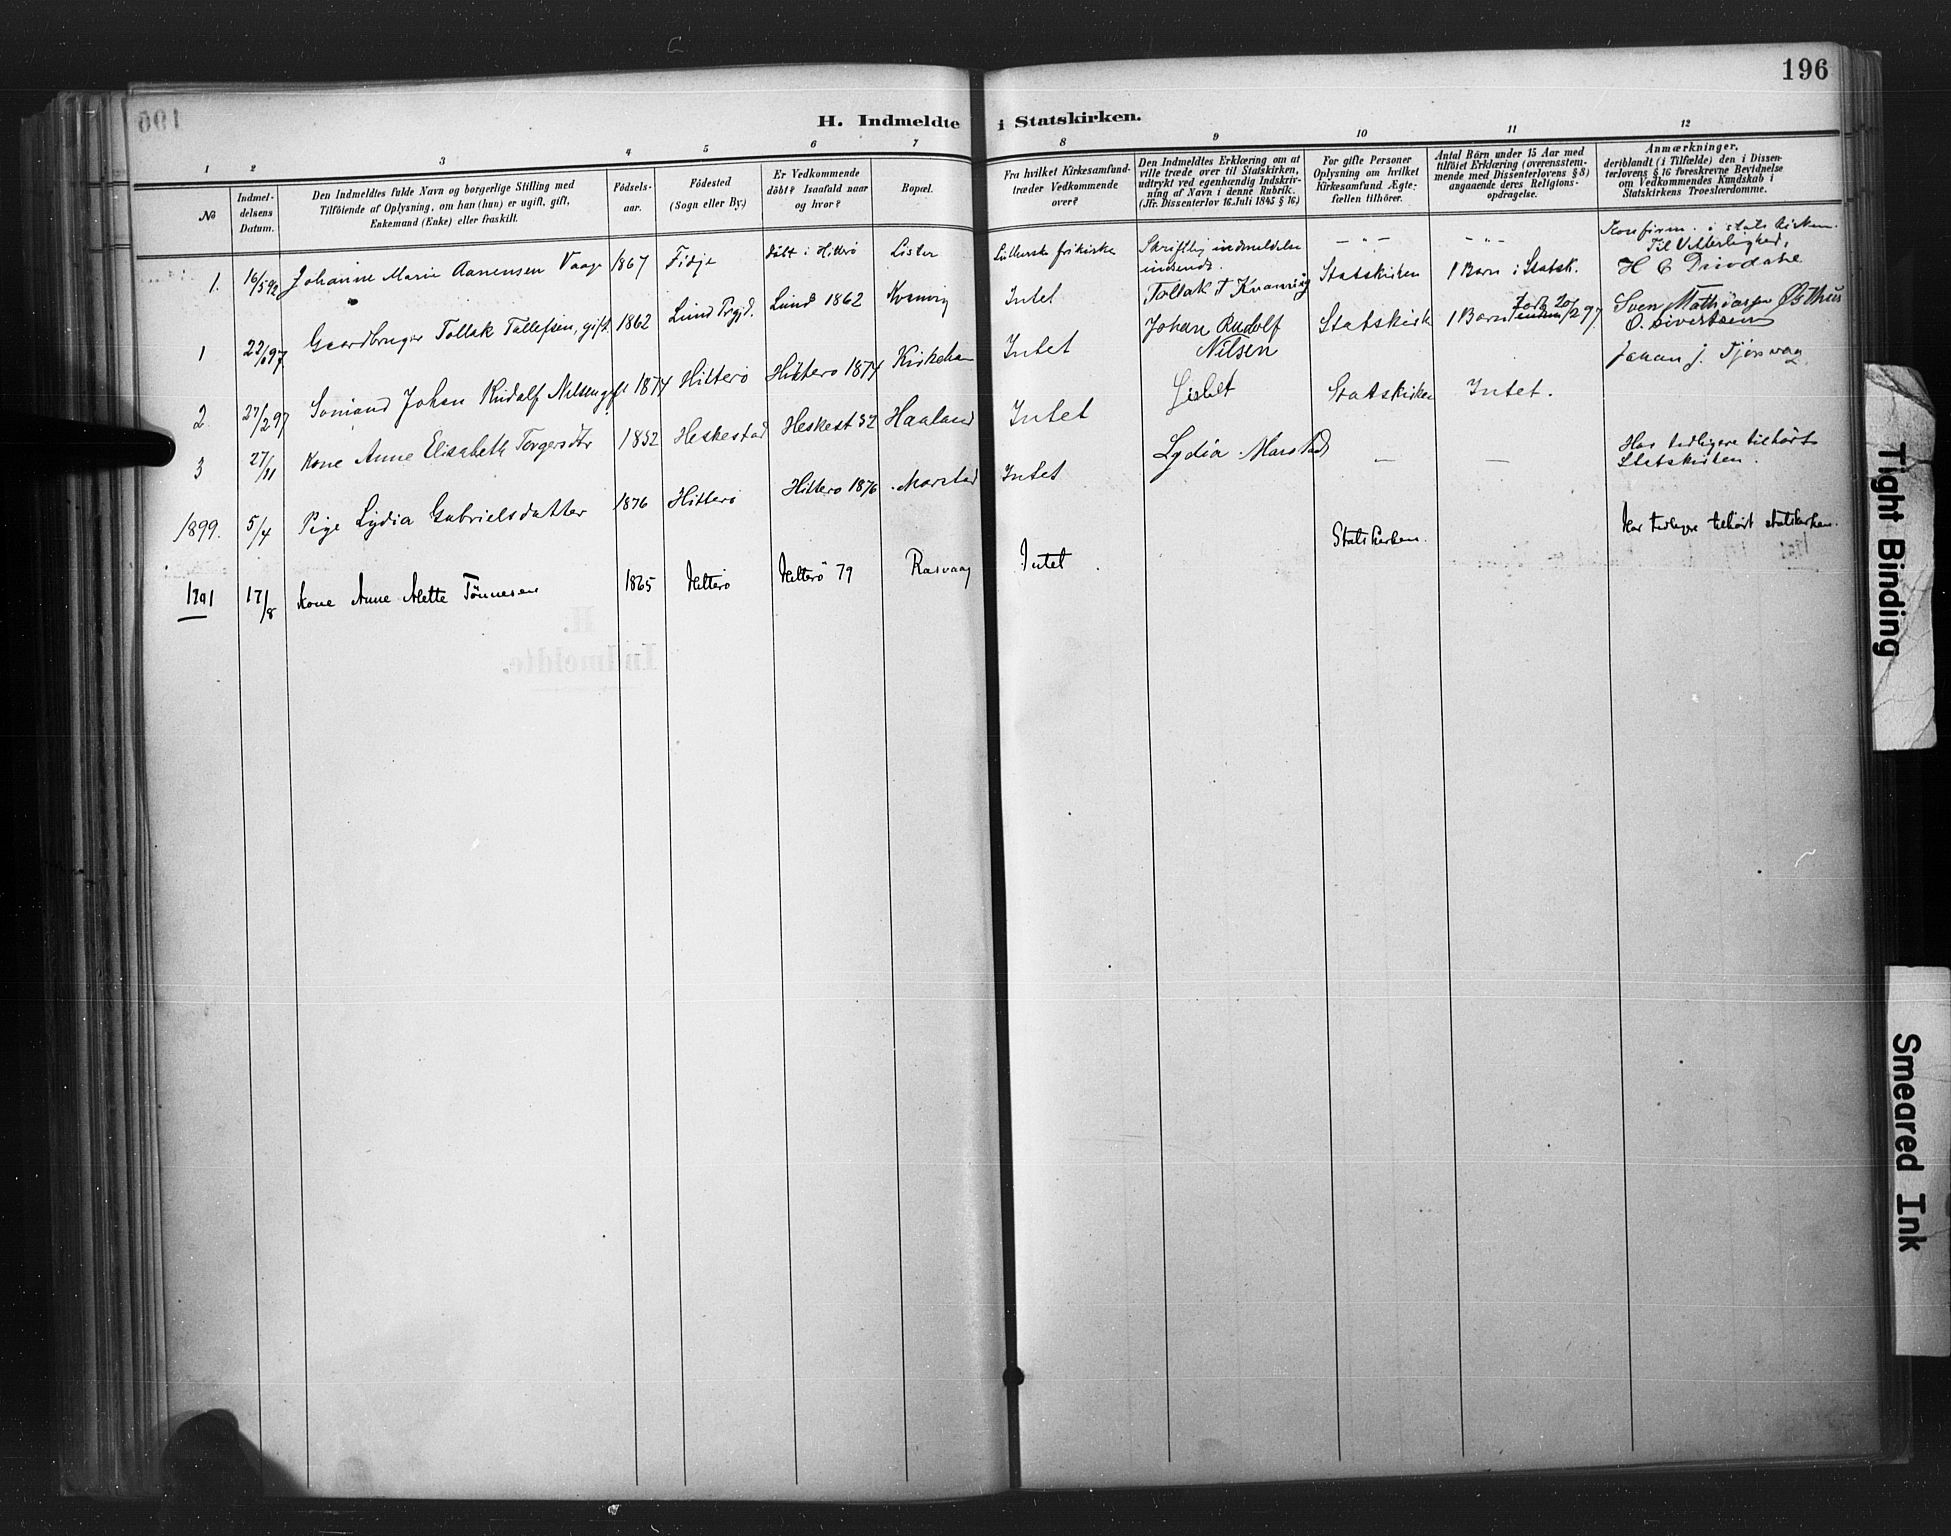 196
H. Indmeldte i Statskirken.
1 2 3 4 5 6 7 8 9 10 11 12
№
Indmel-
delsens
Datum.
Den Indmeldtes fulde Navn og borgerlige Stilling med
Tilföiende af Oplysning, om han (hun) er ugift, gift,
Enkemand (Enke) eller fraskilt.
Födsels-
aar.
Födested
(Sogn eller By.)
Er Vedkommende
döbt? Isaafald naar
og hvor?
Bopæl.
Fra hvilket Kirkesamfund-
træder Vedkommende
over?
Den Indmeldtes Erklæring om at
ville træde over til Statskirken,
udtrykt ved egenhændig Indskriv-
ning af Navn i denne Rubrik.
(Jfr. Dissenterlov 16. Juli 1845 § 16.)
For gifte Personer
Oplysning om hvilket
Kirkesamfund Ægte-
fællen tilhörer.
Antal Börn under 15 Aar med
tilföiet Erklæring (overensstem-
mende med Dissenterlovens § 8)
angaaende deres Religions-
opdragelse.
Anmærkninger,
deriblandt (i Tilfælde) den i Dissen-
terlovens § 16 foreskrevne Bevidnelse
om Vedkommendes Kundskab i
Statskirkens Troeslærdomme.
1. 16/5 92 Johanne Marie Aanensen Vaage 1867 Fidje döbt i Hitterö Lister Lutherske frikirke Skriftlig indmeldelse
indsendt. — „ — — „ — Konfirm. i stats kirken.
Til Vitterlighed,
1 22/1 97 Gaardbruger Tollak Tollefsen, gift. 1862 Lund Prgjd. Lund 1862 Kvanvig Intet Tollak T Kvanvig Statskirken 1 Barn i Statsk.
Sven Mathiasen Østhus
O. Sivertsen
2 27/2 97 Sömand Johan Rudolf Nilsen gift 1874 Hitterö Hitterö 1874 Kirkehavn Intet Johan Rudolf
Nilsen Statskirk 1 Barn
Johan J.
3 27/11 Kone Anne Elisabeth Torgersdtr 1852 Heskestad Heskest 52 Haaland Intet Statskirken Intet.
1899. 5/4 Pige Lydia Gabrielsdatter 1876 Hitterö Hitterö 1876 Marstad Intet Lydia Marstad — — Har tidligere tilhört
Statskirken.
1901 17/8 Kone Anne Mette Tönnesen 1865 Hitterö Hitterö 79 Rasvaag Intet Statskirken. Har tidligere tilhört statskirken.
Tight Binding
Smeared Ink